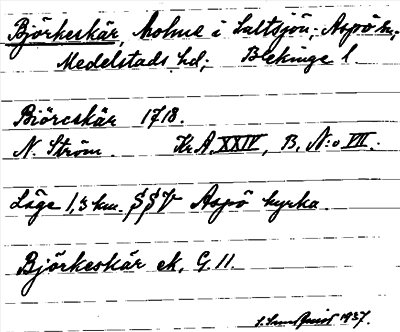 Björkeskär, holme i Saltsjön; Aspö sn,
Medelstads hd; Blekinge l.
Biörcskär 1718.
N. Ström. Kr.A. XXIV, B, N:o VII.
Läge 1,3 km. SSV Aspö kyrka.
Björkeskär ek, G 11.
S. Sundquist 1937.